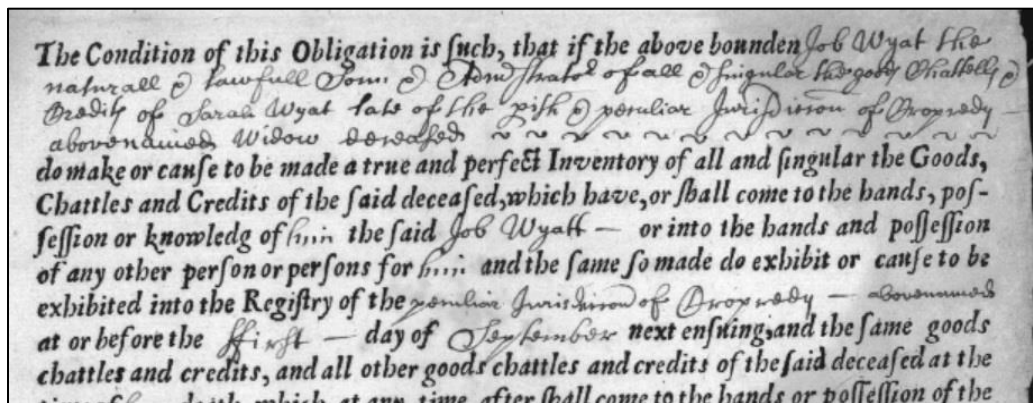 The Condition of this Obligation is ſuch, that if the above bounden Job Wyat the
naturall & lawfull Sonn & Admstrator of all & singular the goods Chattells &
Creditts of Sarah Wyat late of the pish & peculiar Jurisdiccon of Cropredy —
abovenamed Widow deceased ~ ~ ~ ~ ~ ~ ~ ~ ~ ~ ~ ~
do make or cauſe to be made a true and perfect Inventory of all and ſingular the Goods,
Chattles and Credits of the ſaid deceaſed, which have, or ſhall come to the hands, poſ-
ſeſſion or knowledg of him the ſaid Job Wyatt — or into the hands and poſſeſſion
of any other perſon or perſons for him and the ſame ſo made do exhibit or cauſe to be
exhibited into the Regiſtry of the peculiar Jurisdiccon of Cropredy — abovenamed
at or before the ffirst — day of September next enſuing; and the ſame goods
chattles and credits, and all other goods chattles and credits of the ſaid deceaſed at the
which at any time after ſhall come to the hands or poſſeſſion of the